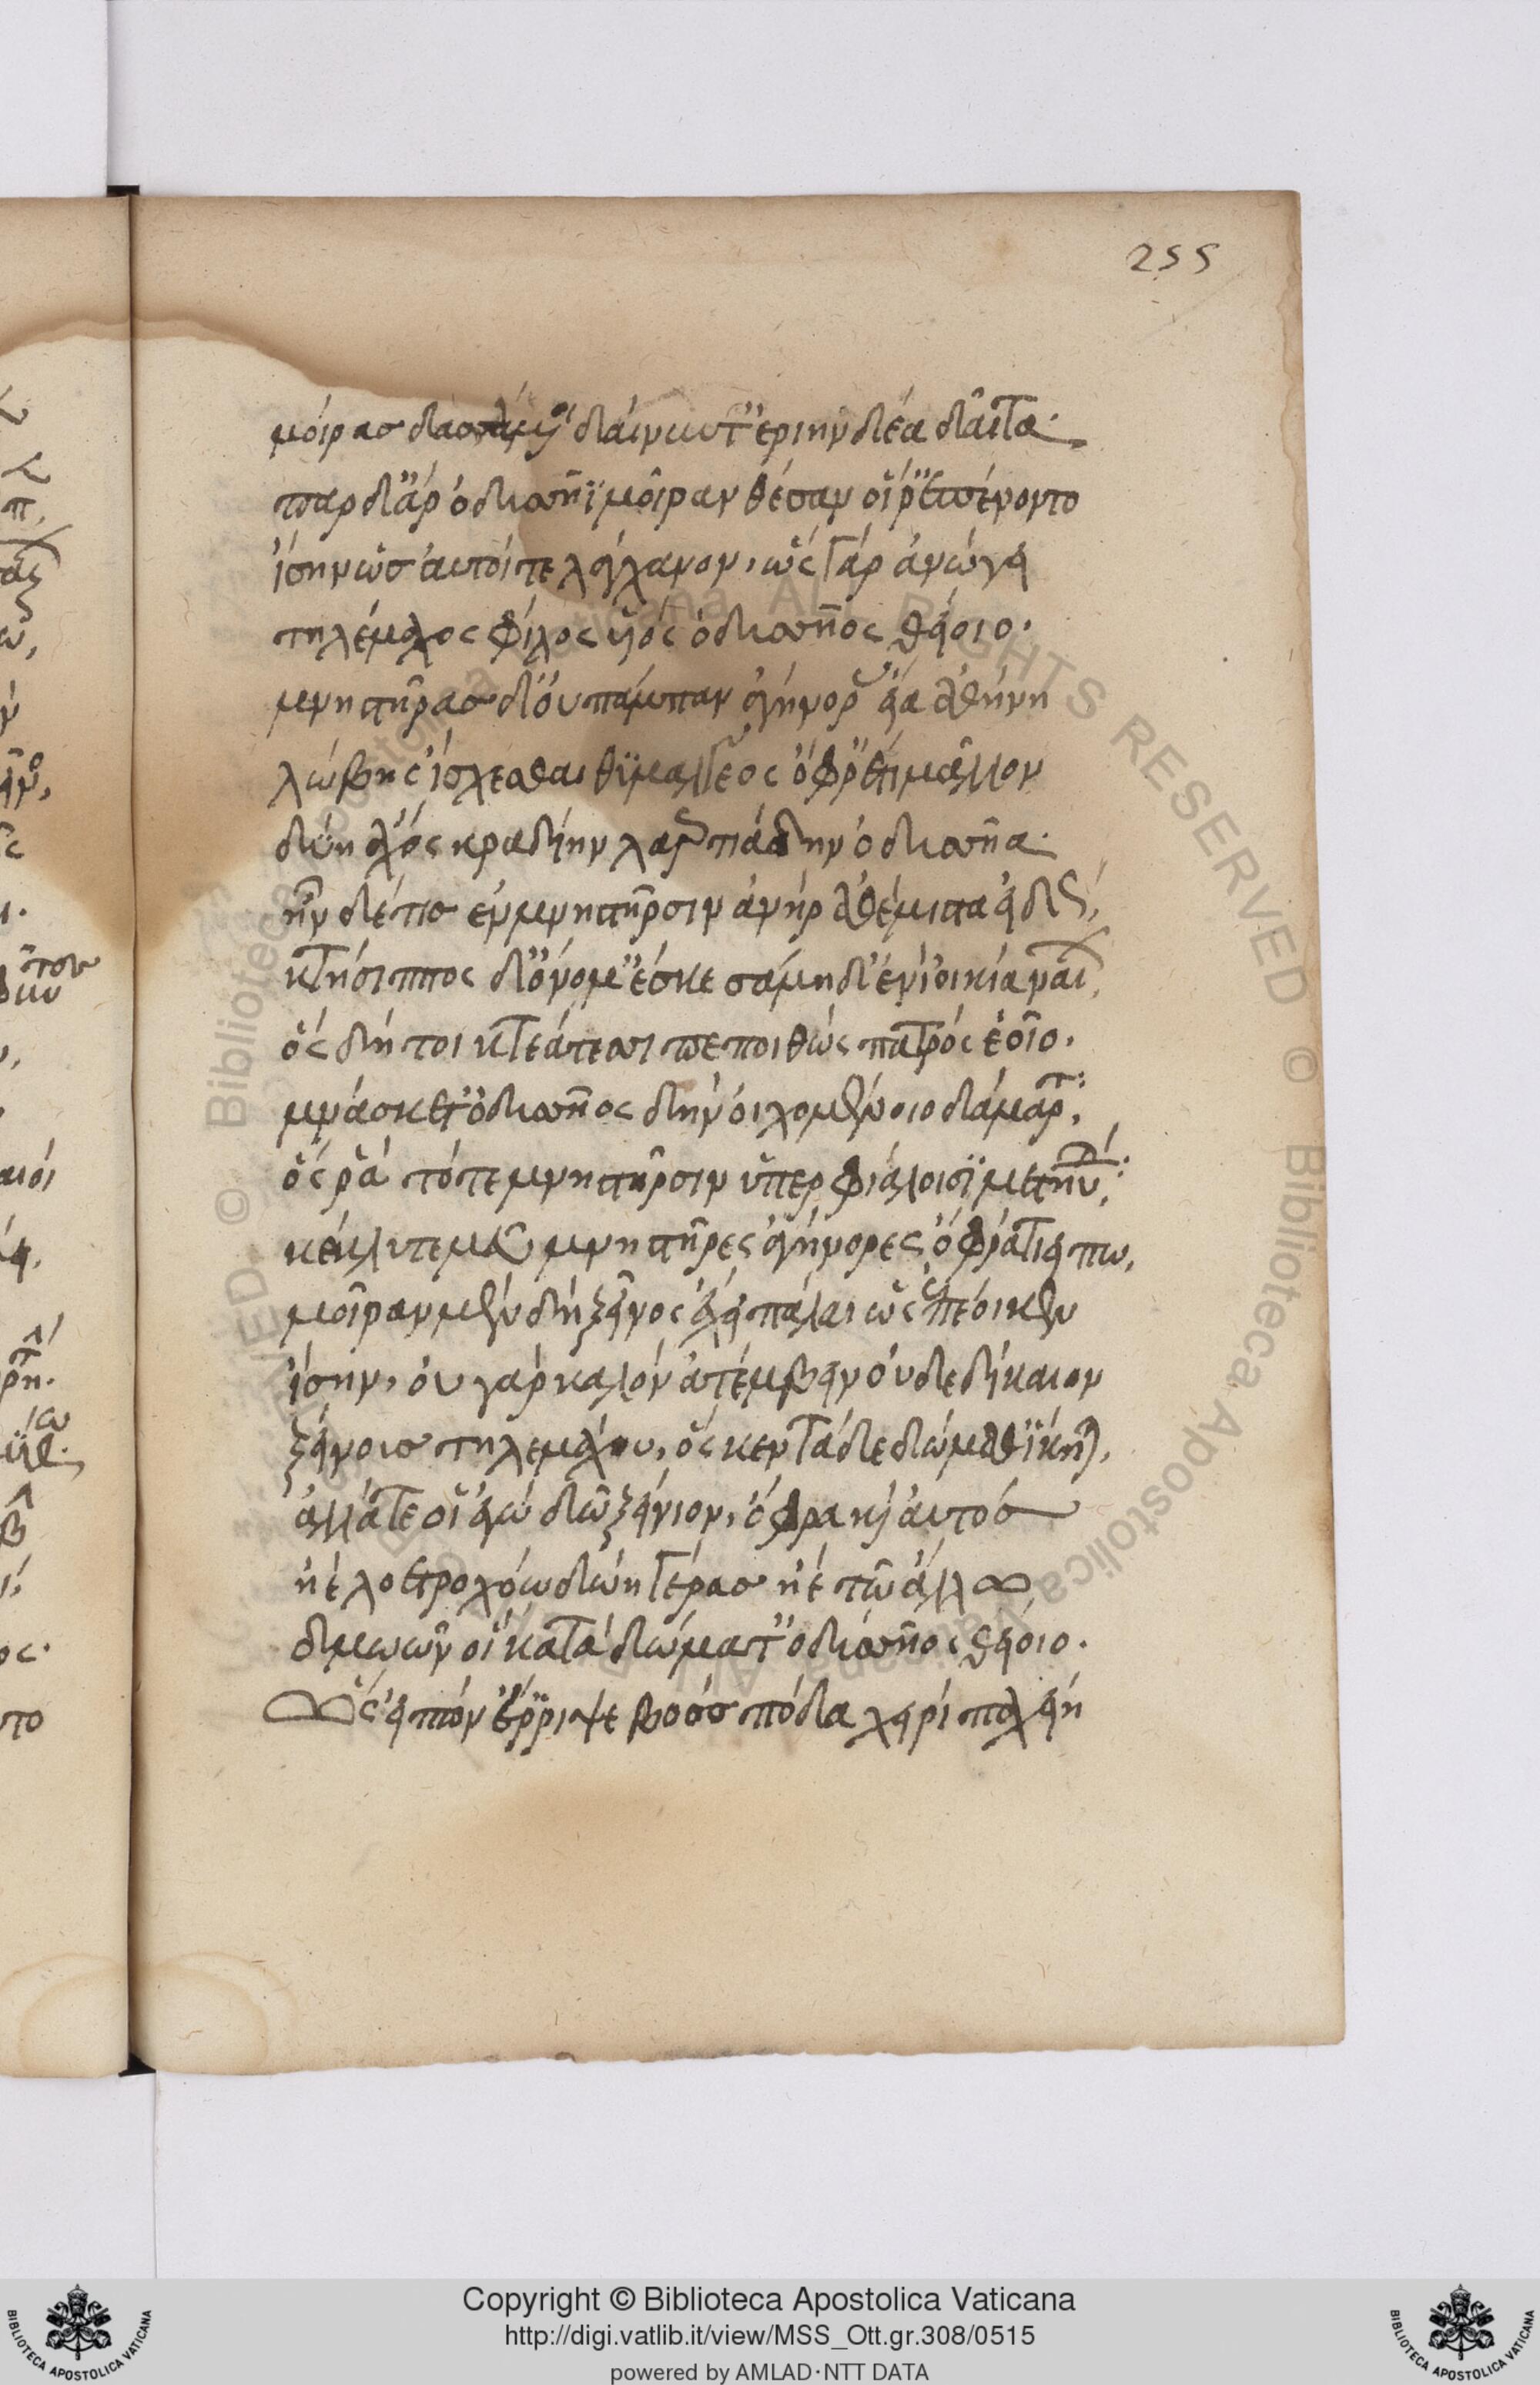 255
μοίρας δασσάμενοι δαίνυντ' ἐρικυδέα δαῖτα.
παρ δ' ἄρ ὀδυσσῆϊ μοῖραν θέσαν οἵ ῥ' ἐπένοντο
ἴσην ὡς αὐτοί περ ἐλάγχανον, ὣς γὰρ ἀνώγει
τηλέμαχος φίλος υἱός ὀδυσσῆος θείοιο.
μνηστῆρας δ' ὀυ πάμπαν ἀγήνορας εἴα ἀθήνη
λώβης ἴσχεσθαι θυμαλγέος ὄφρ' ἔτι μᾶλλον
δύη ἄχος κραδίην λαερτιάδην ὀδυσσῆα.
ἦν δέ τις ἐν μνηστῆρσιν ἀνήρ ἀθεμίστια εἰδώς,
κτήσιππος δ' ὄνομ' ἔσκε σάμη δ' ἐνὶ οἰκία ναῖε,
ὅς δή τοι κτεάτεσσι πεποιθώς πατρός ἑοῖο.
μνάσκετ' ὀδυσσῆος δὴν οἰχομένοιο δάμαρτα.
ὅς ῥα τότε μνηστῆρσιν ὑπερφιάλοισι μετηύδα.
κέκλυτέ μευ μνηστῆρες ἀγήνορες ὄφρα τι εἴπω,
μοῖραν μὲν δὴ ξεῖνος ἔχει πάλαι ὡς ἐπέοικεν
ἴσην, ὀυ γὰρ καλόν ἀτέμβειν ὀυδὲ δίκαιον
ξείνους τηλεμάχου, ὅς κεν τάδε δώμαθ' ἵκηται.
ἀλλ' ἄγε οἱ ἐγώ δῶ ξείνιον, ὄφρα καὶ αὐτός
ἠὲ λοετροχόω δώη γέρας ἠέ τῳ ἄλλῳ
δμώων οἳ κατὰ δώματ' ὀδυσσῆος θείοιο.
Ὣς εἰπών ἔρριψε βοός πόδα χειρὶ παχείη
Copyright © Biblioteca Apostolica Vaticana
http://digi.vatlib.it/view/MSS_Ott.gr.308/0515
powered by AMLAD·NTT DATA